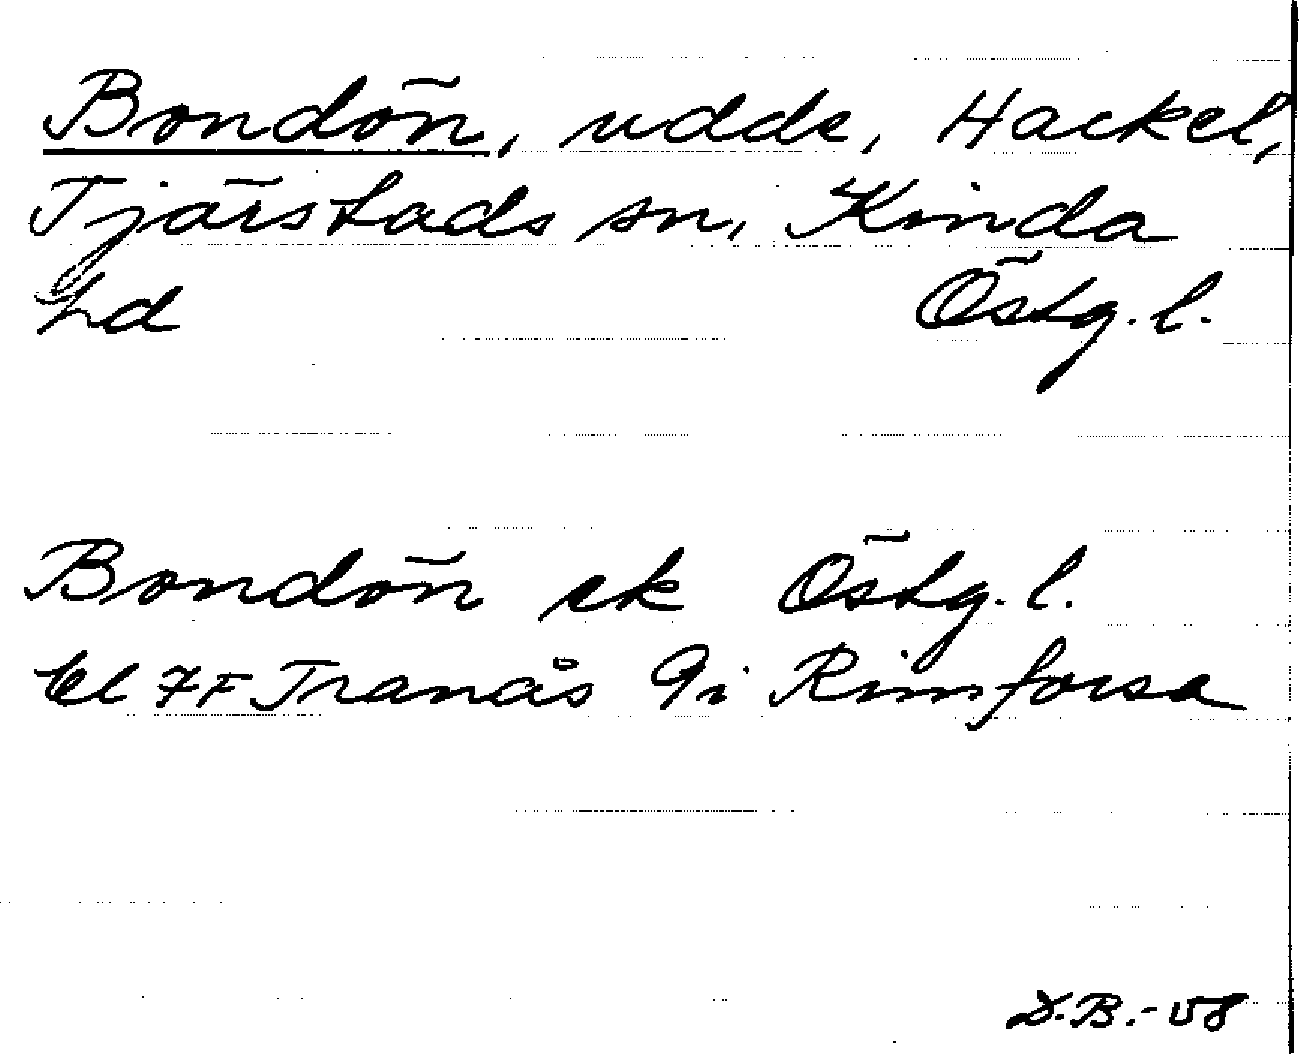 Bondön, udde, Hackel,
Tjärstads sn, Kinda
hd Östg. l.
Bondön ek Östg. l.
bl 7F Tranås 9i Rimforsa
D.B.-58